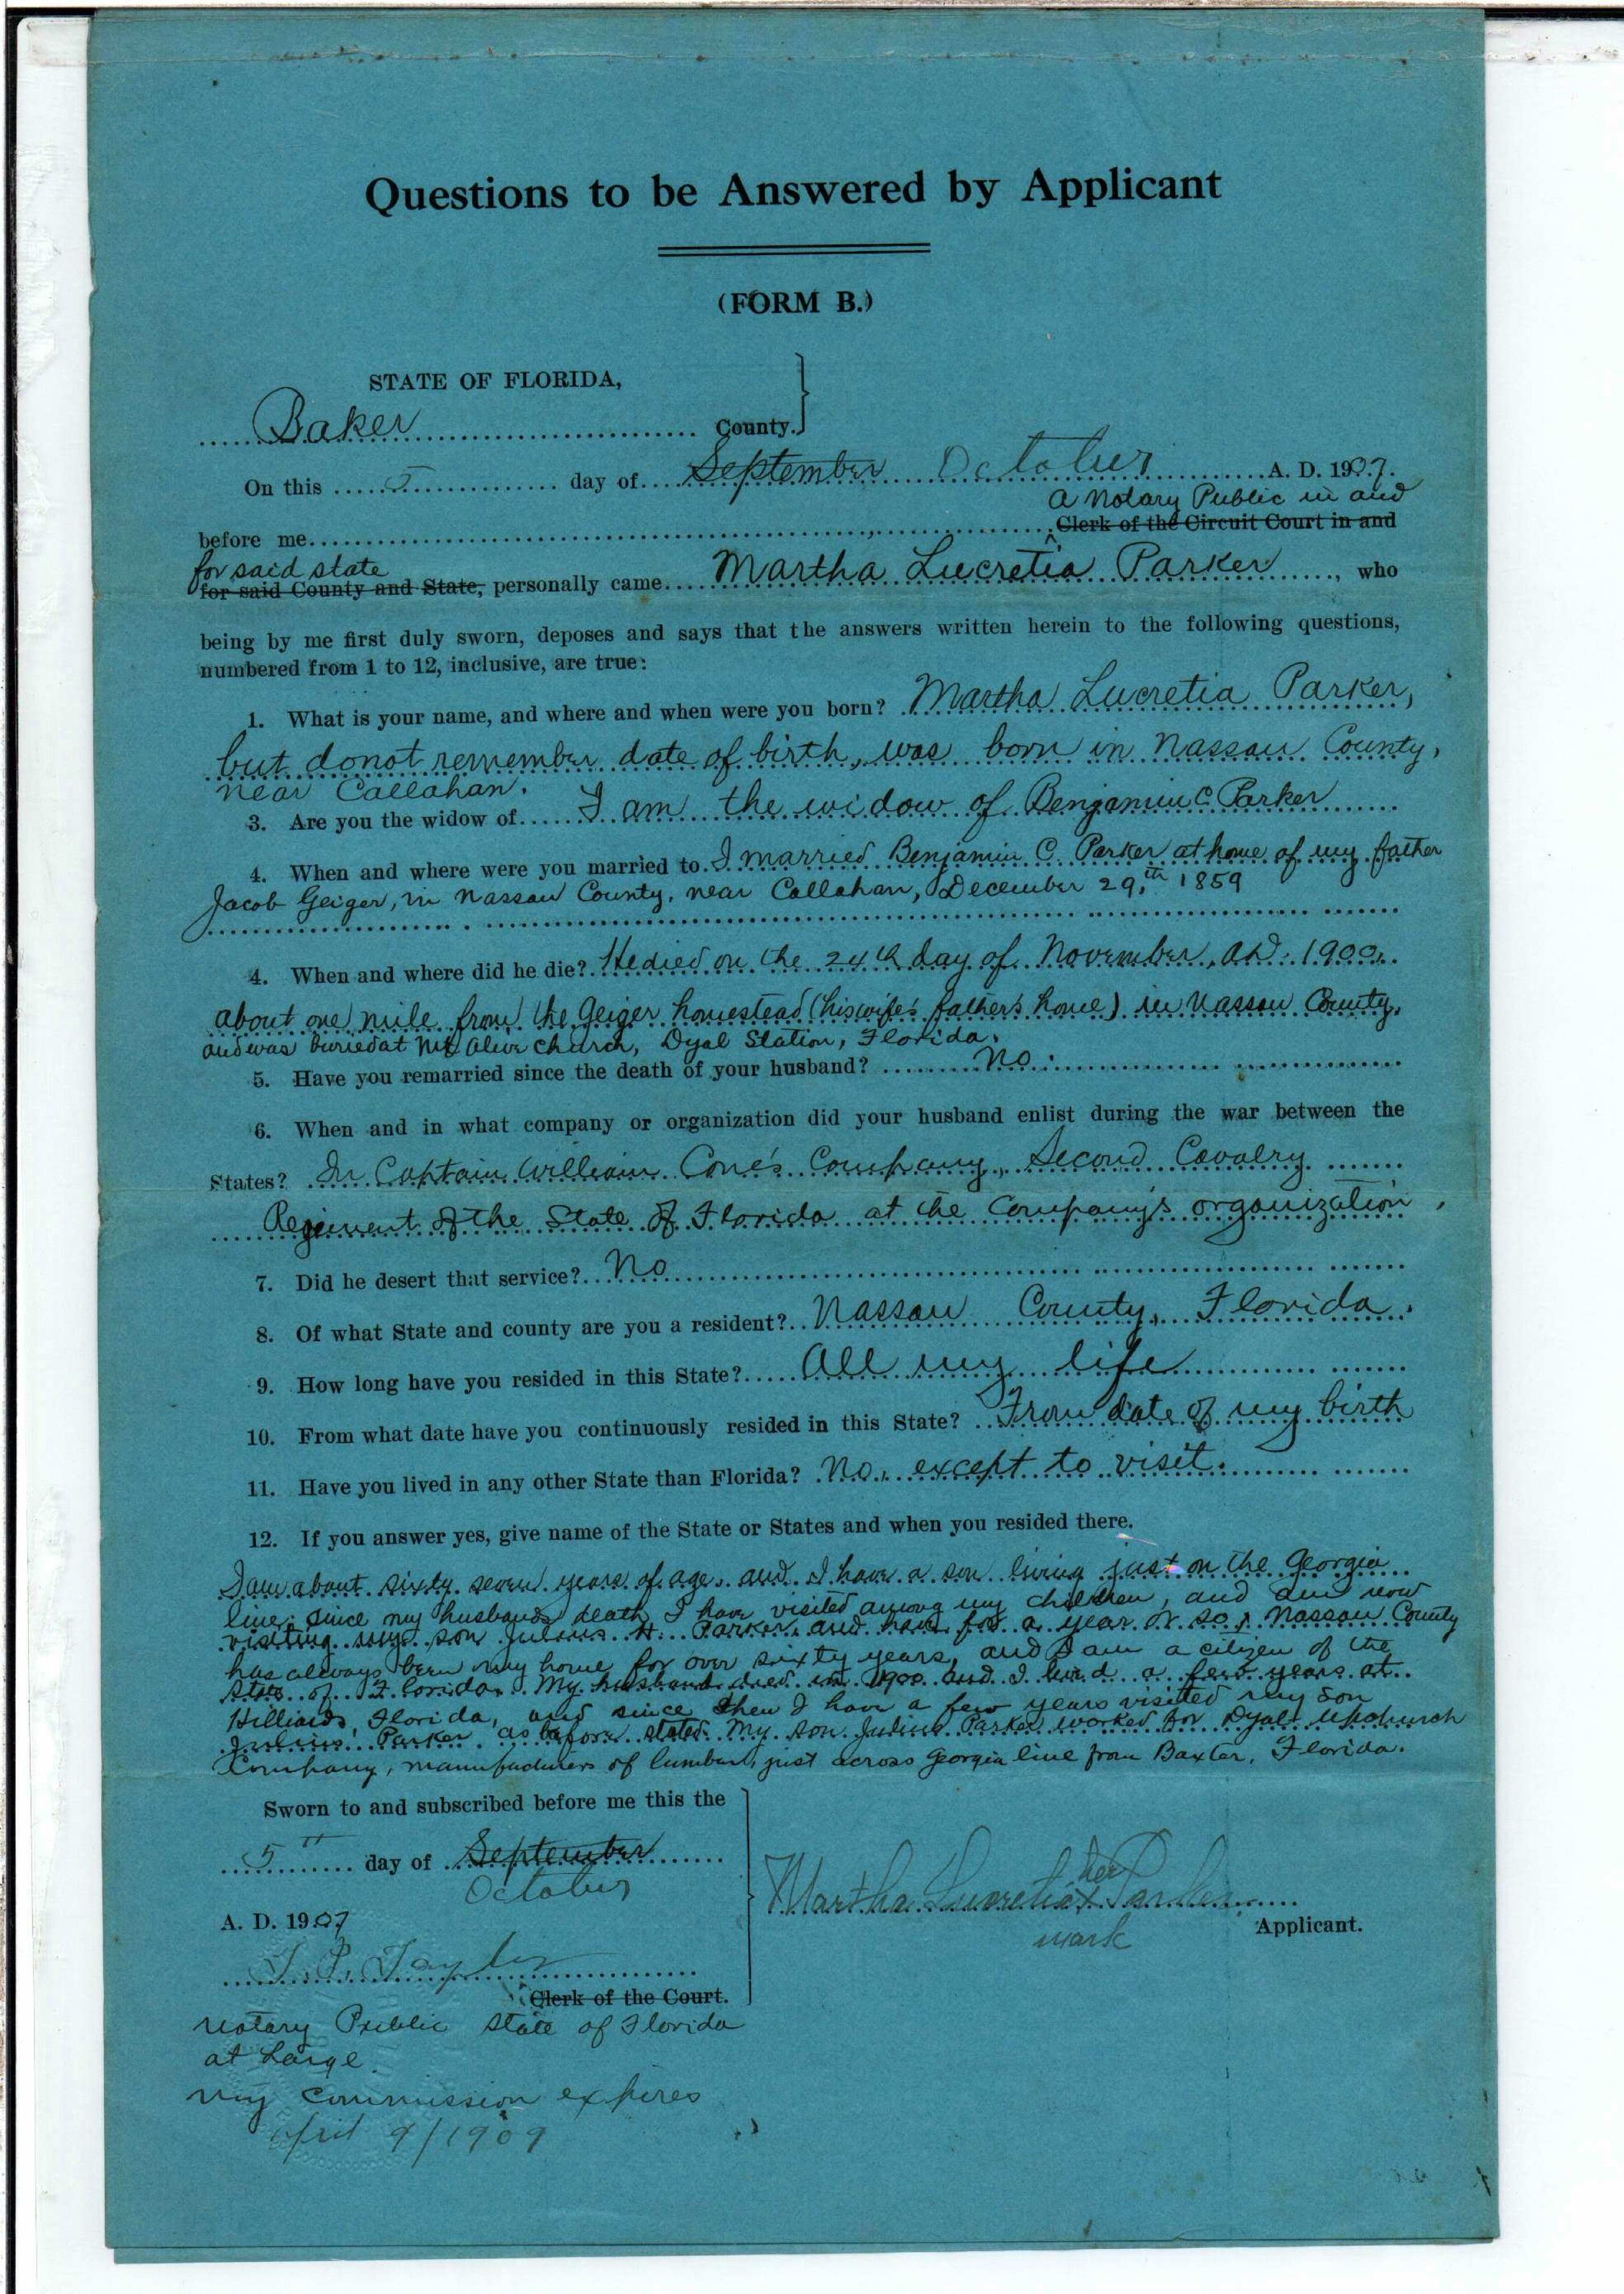 Questions to be Answered by Applicant
(FORM B.)
STATE OF FLORIDA,
Baker County.
On this 5 day of September October A. D. 1907.
a Notary Public in and
before me Clerk of the Circuit Court in and
for said state
for said County and State, personally came Martha Lucretia Parker, who
being by me first duly sworn, deposes and says that the answers written herein to the following questions,
numbered from 1 to 12, inclusive, are true:
1. What is your name, and where and when were you born? Martha Lucretia Parker,
but do not remember date of birth, was born in Nassau County,
near Callahan.
3. Are you the widow of I am the widow of Benjamin C Parker
4. When and where were you married to I married Benjamin C. Parker at home of my father
Jacob Geiger, in Nassau County, near Callahan, December 29,th 1859
4. When and where did he die? He died on the 24th day of November, AD. 1900,
about one mile from the Geiger homestead (his wife's father's home) in Nassau County,
and was buried at Mt Olive Church, Dyal Station, Florida.
5. Have you remarried since the death of your husband? No.
6. When and in what company or organization did your husband enlist during the war between the
States? In Captain William Cone's Company, Second Cavalry
Regiment of the State of Florida at the Company's organization,
7. Did he desert that service? No
8. Of what State and county are you a resident? Nassau County, Florida.
9. How long have you resided in this State? All my life
10. From what date have you continuously resided in this State? From date of my birth
11. Have you lived in any other State than Florida? No, except to visit.
12. If you answer yes, give name of the State or States and when you resided there.
I am about sixty seven years of age, and I have a son living just on the Georgia
line; since my husbands death I have visited among my children, and am now
visiting my son Julius H. Parker, and have for a year or so, Nassau County
has always been my home for over sixty years, and I am a citizen of the
State of Florida. My husband died in 1900 and I lived a few years at
Hilliards, Florida, and since then I have a few years visited my son
Julius Parker as before stated. My son Julius Parker worked for Dyal Upchurch
Company, manufacturers of lumber, just across Georgia line from Baxter, Florida.
Sworn to and subscribed before me this the
5th day of September
October
A. D. 1907
T. P. Taylor
Clerk of the Court.
Notary Public State of Florida
at Large.
My commission expires
April 9/1909
her
Martha Lucretia X Parker
mark
Applicant.